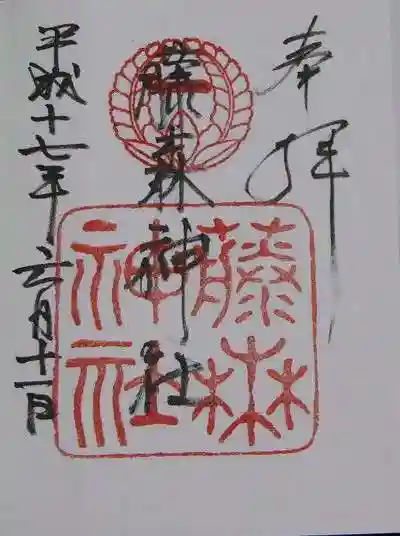 奉拝
藤森神社
平成十七年六月十一日
藤森
神社